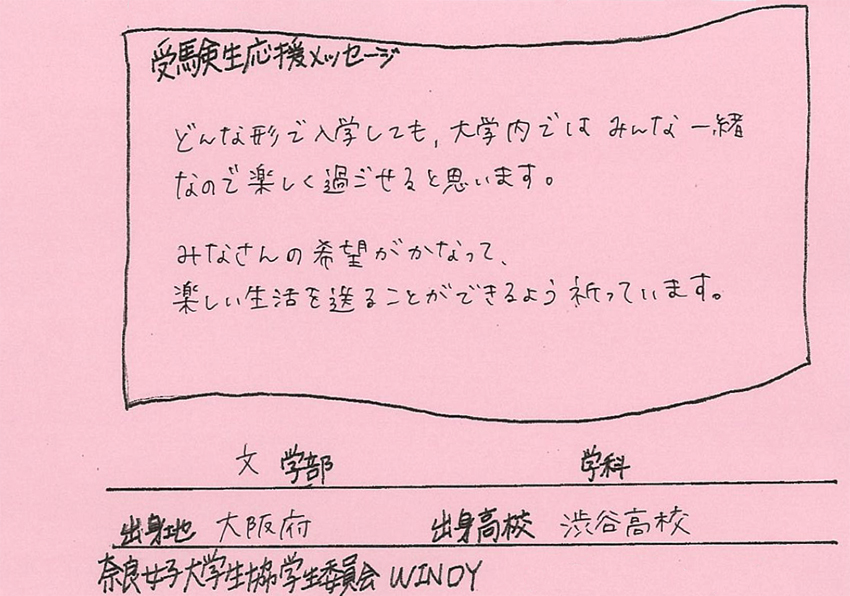 受験生応援メッセージ
どんな形で入学しても、大学内ではみんな一緒
なので楽しく過ごせると思います。
みなさんの希望がかなって、
楽しい生活を送ることができるよう祈っています。
文 学部 学科
出身地 大阪府 出身高校 渋谷高校
奈良女子大学生協学生委員会 WINDY